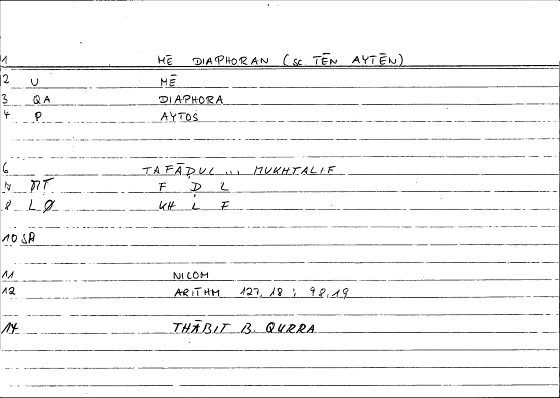 1 MĒ DIAPHORAN (sc. TĒN AYTĒN)
2 U MĒ
3 QA DIAPHORA
4 P AYTOS
6 TAFĀḌUL ... MUKHTALIF
7 MT F Ḍ L
8 LØ KH L F
10 SA
11 NICOM
12 ARITHM 127,18 ; 98,19
14 THĀBIT B. QURRA